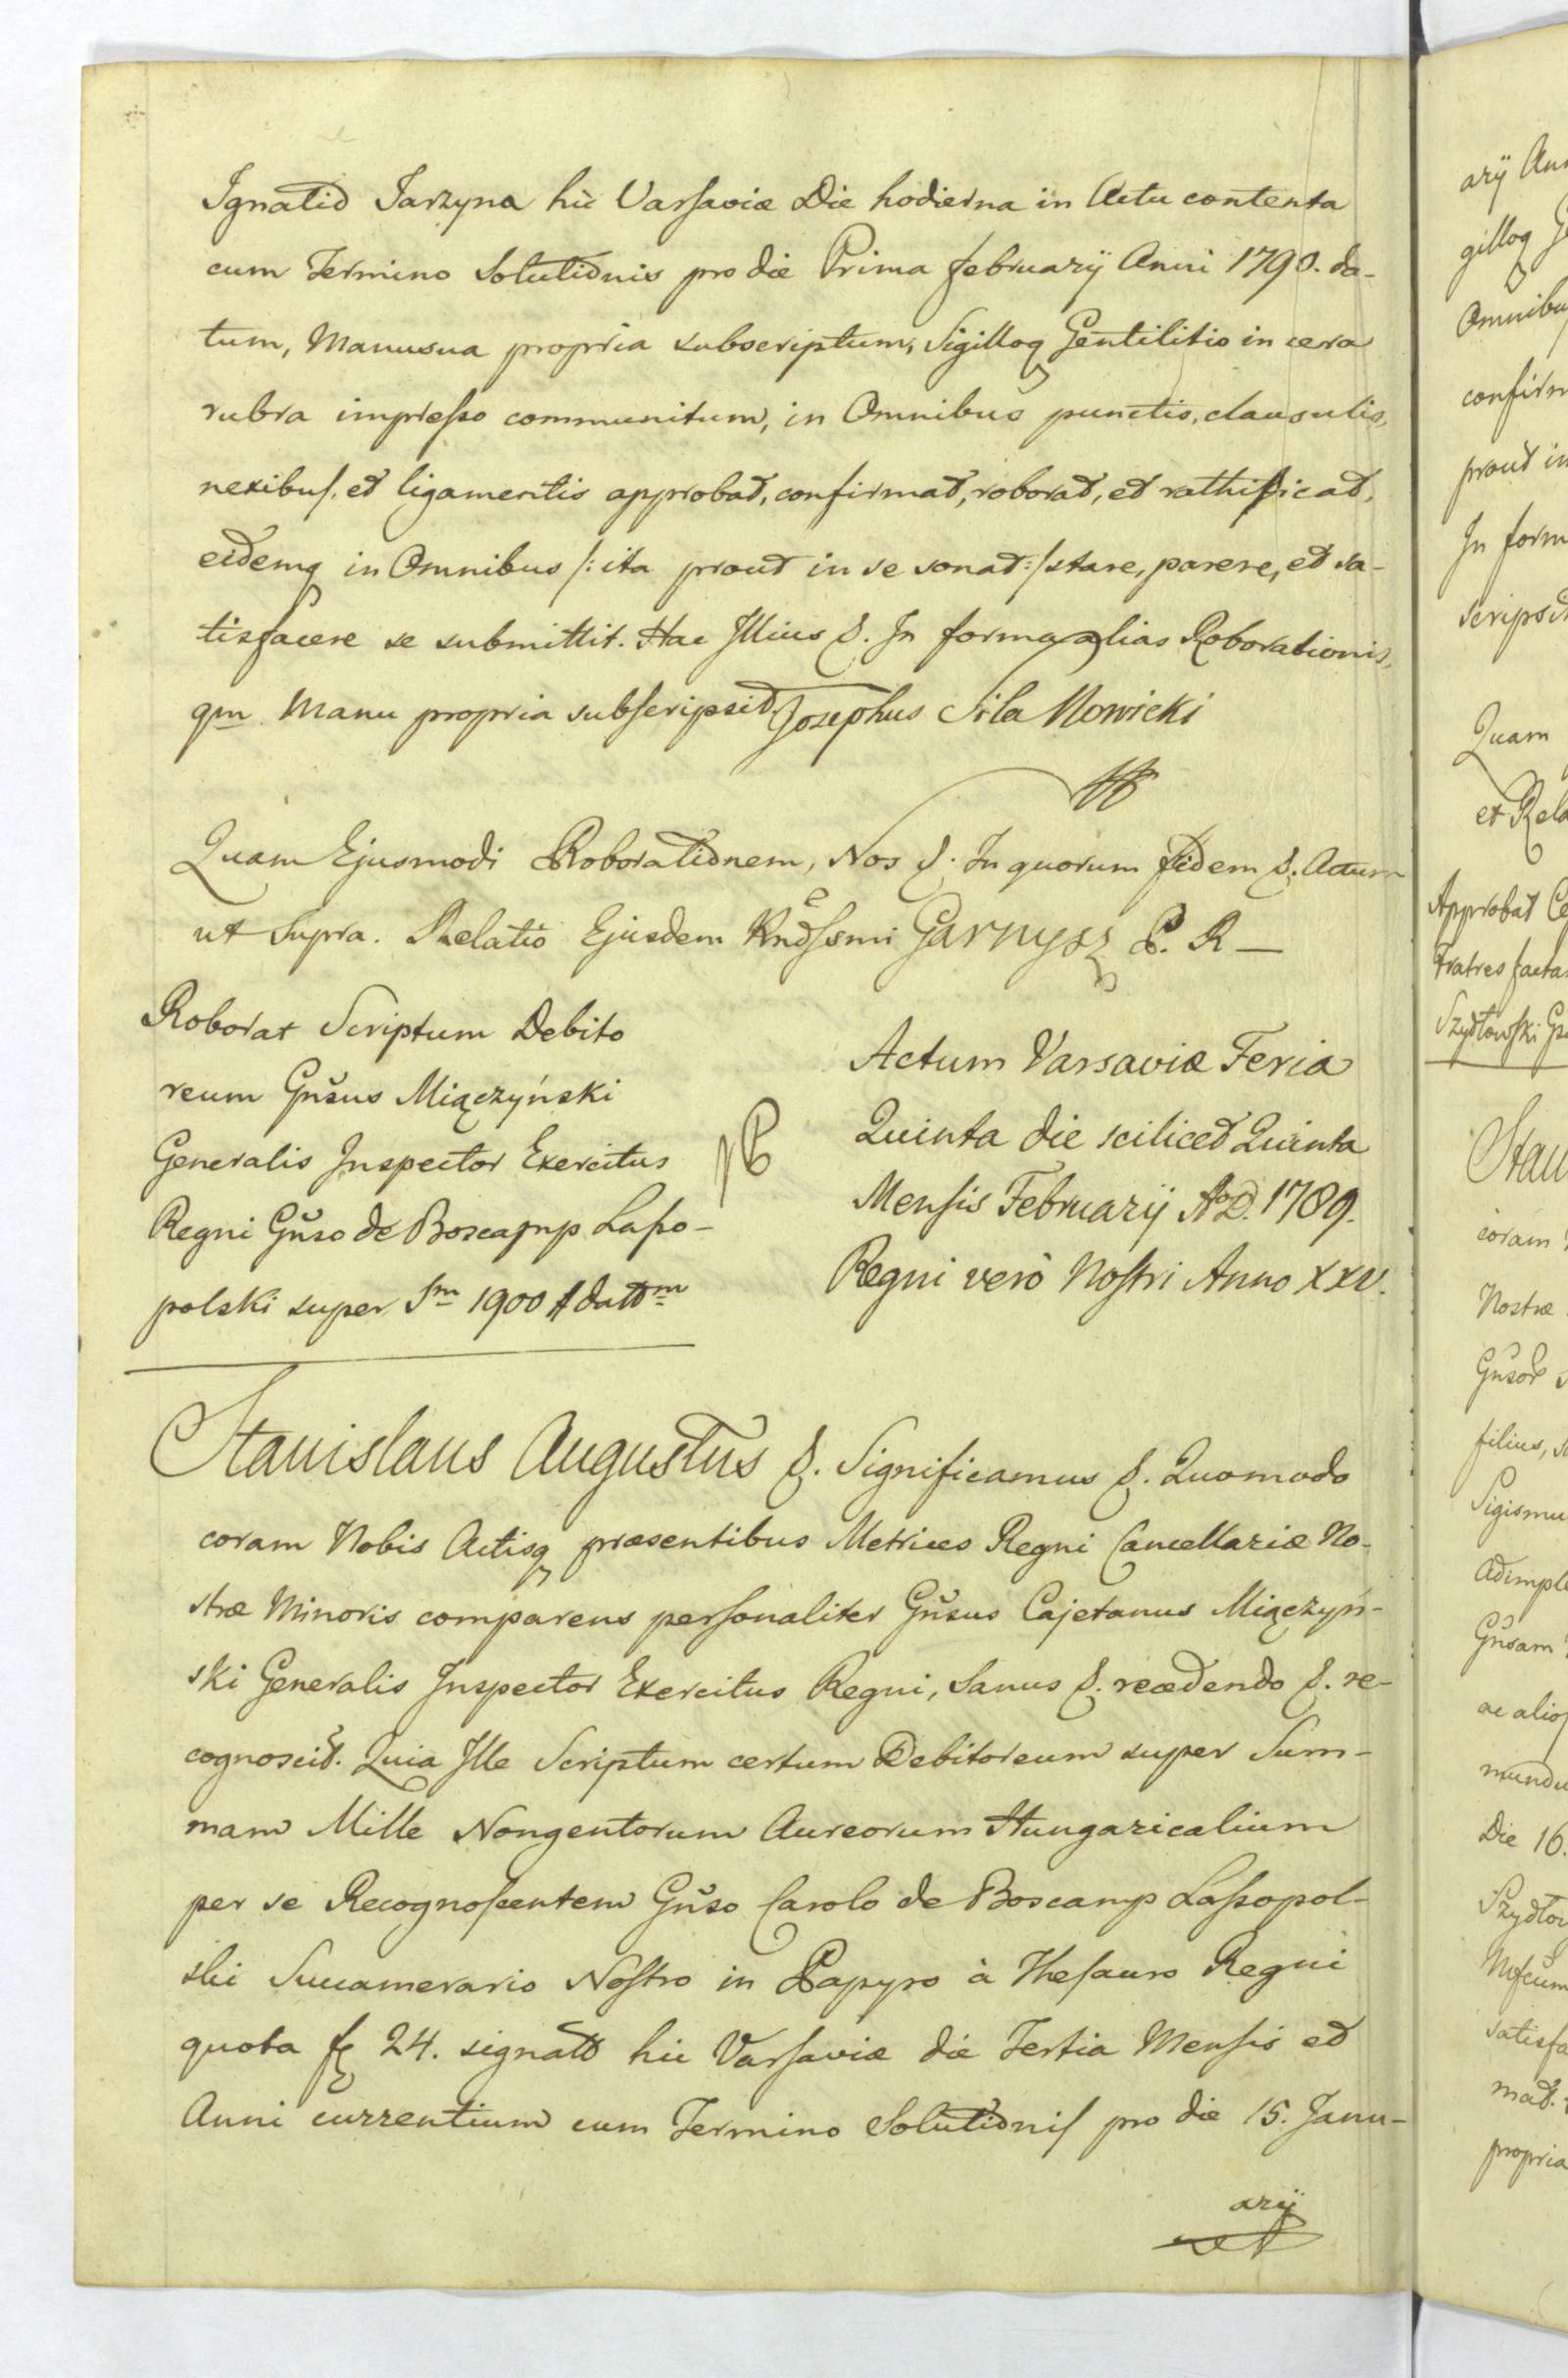 Ignatio Jarzyna hic Varsaviæ Die hodierna in Actu contenta
cum Termino Solutionis pro die Prima february Anni 1790. da-
tum, Manusua propria subscriptum, Sigilloq Gentilitio in cera
rubra impresso communitum, in Omnibus punctis, clausulis,
nexibus, et ligamentis approbat, confirmat, roborat, et rathificat,
eidemq in Omnibus /: ita prout in se sonat :/ stare, parere, et sa-
tisfacere se submittit. Hac Illius &. In forma alias Roborationis,
qm Manu propria subscripsit Josephus Siła Nowicki
Quam Ejusmodi Roborationem, Nos &. In quorum fidem &. Actum
ut Supra. Relatio Ejusdem Rndssmi Garnysz P. R —
Roborat Scriptum Debito
reum Gnsus Miączyński
Generalis Inspector Exercitus
Regni Gnso de Boscamp Lasso-
polski super Sm 1900 # dattm
Actum Varsaviæ Feria
Quinta die scilicet Quinta
Mensis February A. D. 1789.
Regni verò Nostri Anno XXV.
Stanislaus Augustus &. Significamus &. Quomodo
coram Nobis Actisq præsentibus Metrices Regni Cancellariæ No-
stræ Minoris comparens personaliter Gnsus Cajetanus Miączyń-
ski Generalis Inspector Exercitus Regni, Sanus &. recedendo &. re-
cognoscit. Quia Ille Scriptum certum Debitoreum super Sum-
mam Mille Nongentorum Aureorum Hungaricalium
per se Recognoscentem Gnso Carolo de Boscamp Lassopol-
ski Succamerario Nostro in Papyro à Thesauro Regni
quota fl 24. signatto hic Varsaviæ die Tertia Mensis et
Anni currentium cum Termino Solutionis pro die 15. Janu-
ary
ary
Omnibu
confirm
prout in
In form
scripsit
Quam
et Rela
Approbat
Fratres facta
Szydłowski
Stan
coram
Nostræ
filius,
Sigismu
adimple
Gnsam
ac alios
mundu
Die 16.
Szydłow
satisfa
mat.
propria